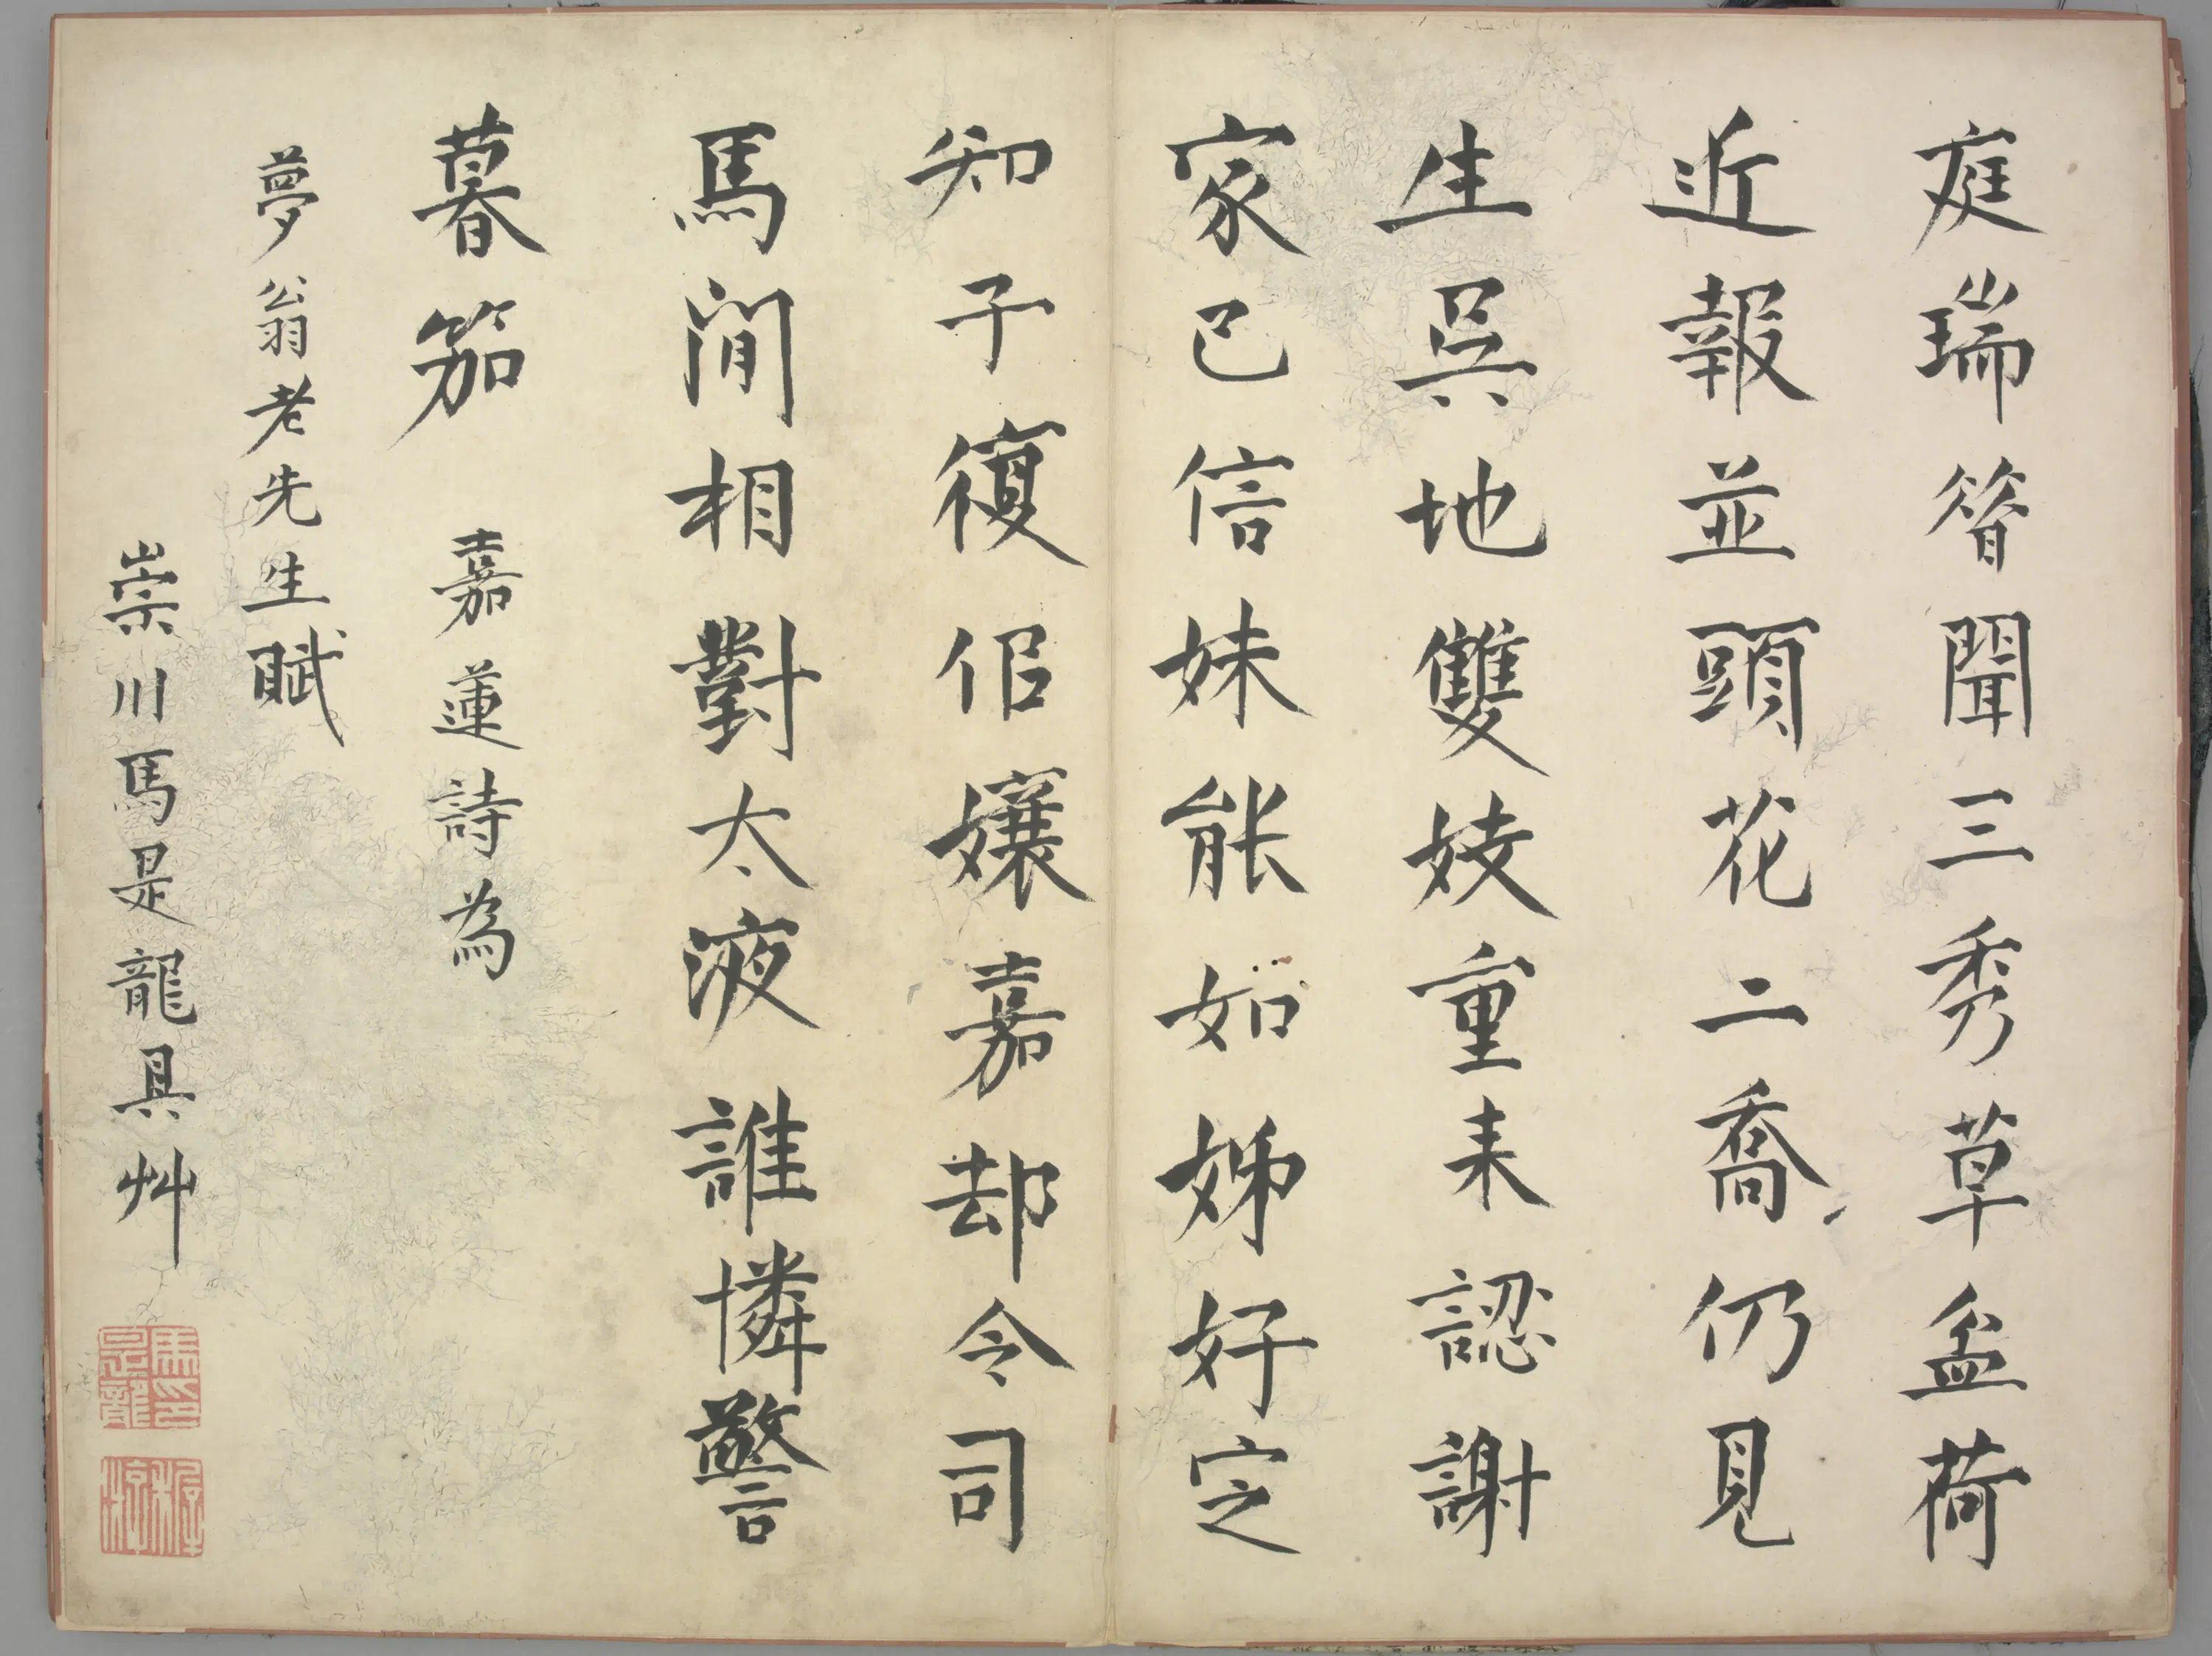 庭瑞簮聞三秀草盆荷
近報並頭花二喬仍見
生吳地雙妓重来認謝
家已信妹能如姊好定
知子復佀孃嘉却令司
馬閒相對太液誰憐警
暮笳 嘉蓮詩為
夢翁老先生賦
崇川馬是龍具艸
馬印是龍